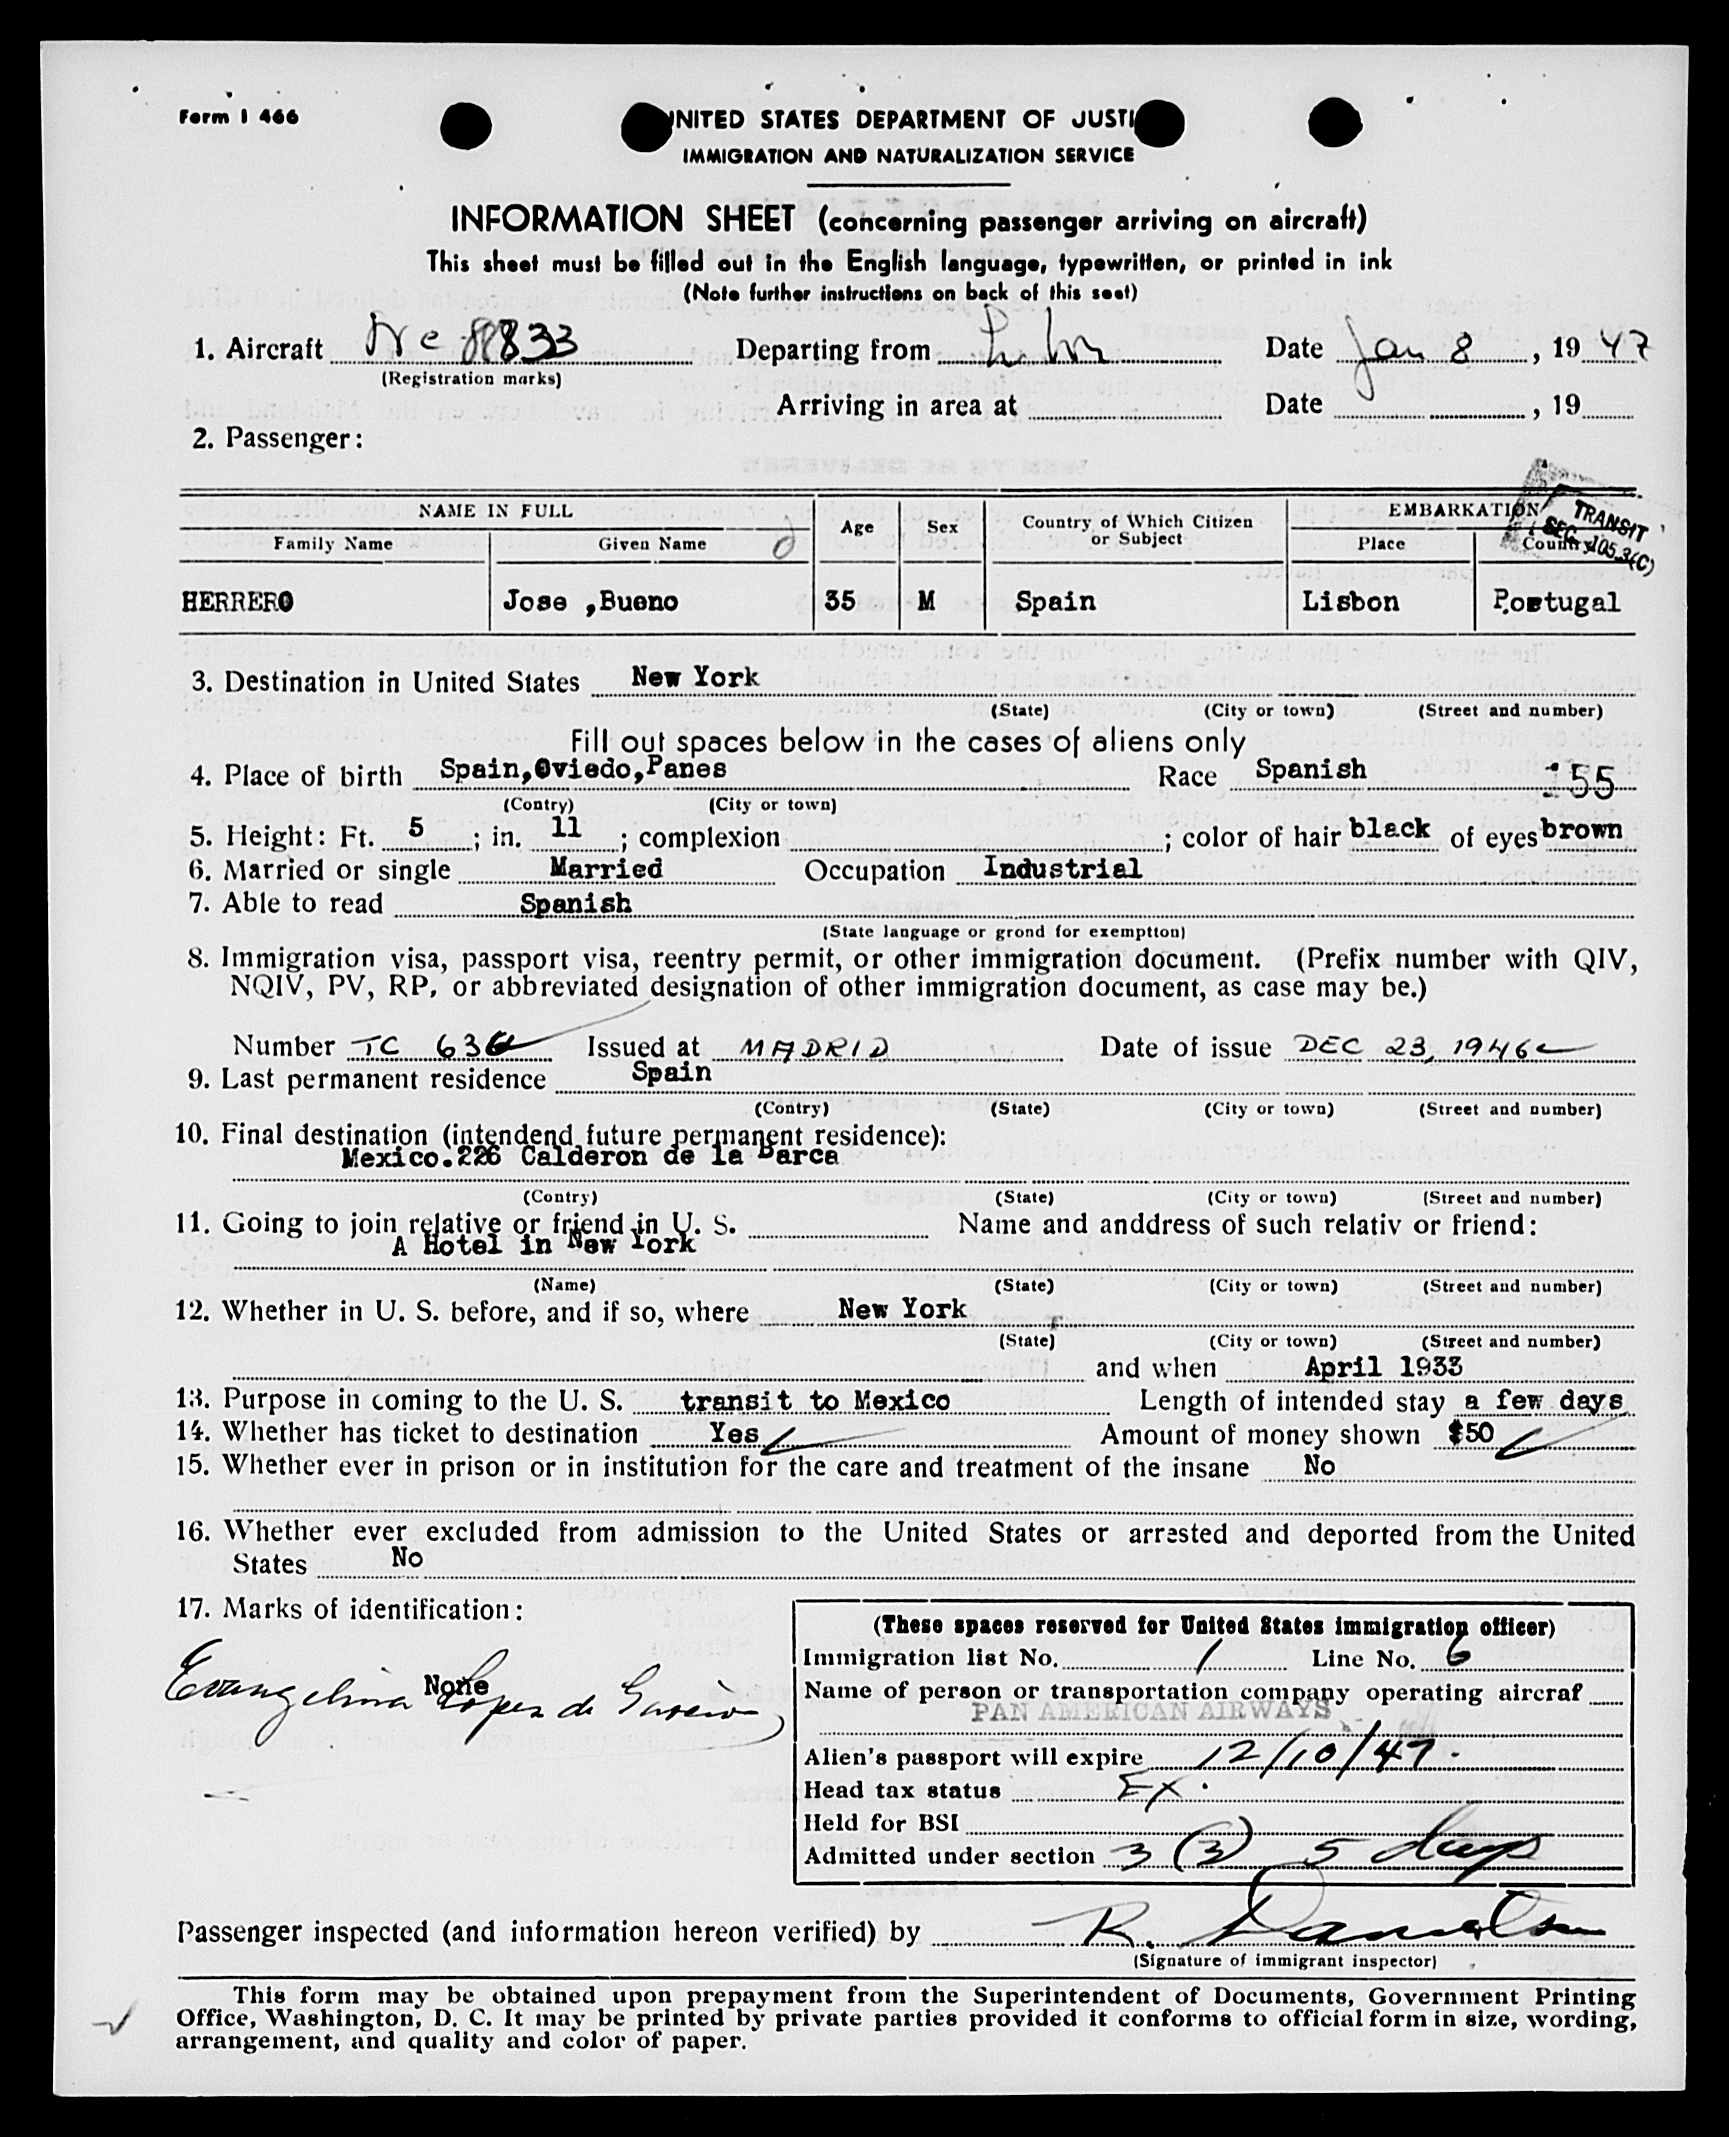 Form I 466
UNITED STATES DEPARTMENT OF JUSTI
IMMIGRATION AND NATURALIZATION SERVICE
INFORMATION SHEET (concerning passenger arriving on aircraft)
This sheet must be filled out in the English language, typewritten, or printed in ink
(Note further instructions on back of this seet)
1. Aircraft 88833 Departing from Date Jan 8, 1947
(Registration marks)
Arriving in area at Date , 19
2. Passenger:
NAME IN FULL Age Sex Country of Which Citizen or Subject EMBARKATION
TRANSIT
SEC. 105.3(C)
Family Name Given Name Place Country
HERRERO Jose ,Bueno 35 M Spain Lisbon Poetugal
3. Destination in United States New York
(State) (City or town) (Street and number)
Fill out spaces below in the cases of aliens only
4. Place of birth Spain,Oviedo,Panes Race Spanish 155
(Contry) (City or town)
5. Height: Ft. 5 ; in. 11 ; complexion ; color of hair black of eyes brown
6. Married or single Married Occupation Industrial
7. Able to read Spanish
(State language or grond for exemptton)
8. Immigration visa, passport visa, reentry permit, or other immigration document. (Prefix number with QIV,
NQIV, PV, RP, or abbreviated designation of other immigration document, as case may be.)
Number TC 636 Issued at MADRID Date of issue DEC 23, 1946
9. Last permanent residence Spain
(Contry) (State) (City or town) (Street and number)
10. Final destination (intendend future permanent residence):
Mexico.226 Calderon de la Barca
(Contry) (State) (City or town) (Street and number)
11. Going to join relative or friend in U. S. Name and anddress of such relativ or friend:
A Hotel in New York
(Name) (State) (City or town) (Street and number)
12. Whether in U. S. before, and if so, where New York
(State) (City or town) (Street and number)
and when April 1933
13. Purpose in coming to the U. S. transit to Mexico Length of intended stay a few days
14. Whether has ticket to destination Yes Amount of money shown $50
15. Whether ever in prison or in institution for the care and treatment of the insane No
16. Whether ever excluded from admission to the United States or arrested and deported from the United
States No
17. Marks of identification:
None
Evangelina Lopez de
(These spaces reserved for United States immigration officer)
Immigration list No. 1 Line No. 6
Name of person or transportation company operating aircraf
PAN AMERICAN AIRWAYS
Alien's passport will expire 12/10/47.
Head tax status EX.
Held for BSI
Admitted under section 3 (3) 5 days
Passenger inspected (and information hereon verified) by R. Danielson
(Signature of immigrant inspector)
This form may be obtained upon prepayment from the Superintendent of Documents, Government Printing
Office, Washington, D. C. It may be printed by private parties provided it conforms to official form in size, wording,
arrangement, and quality and color of paper.